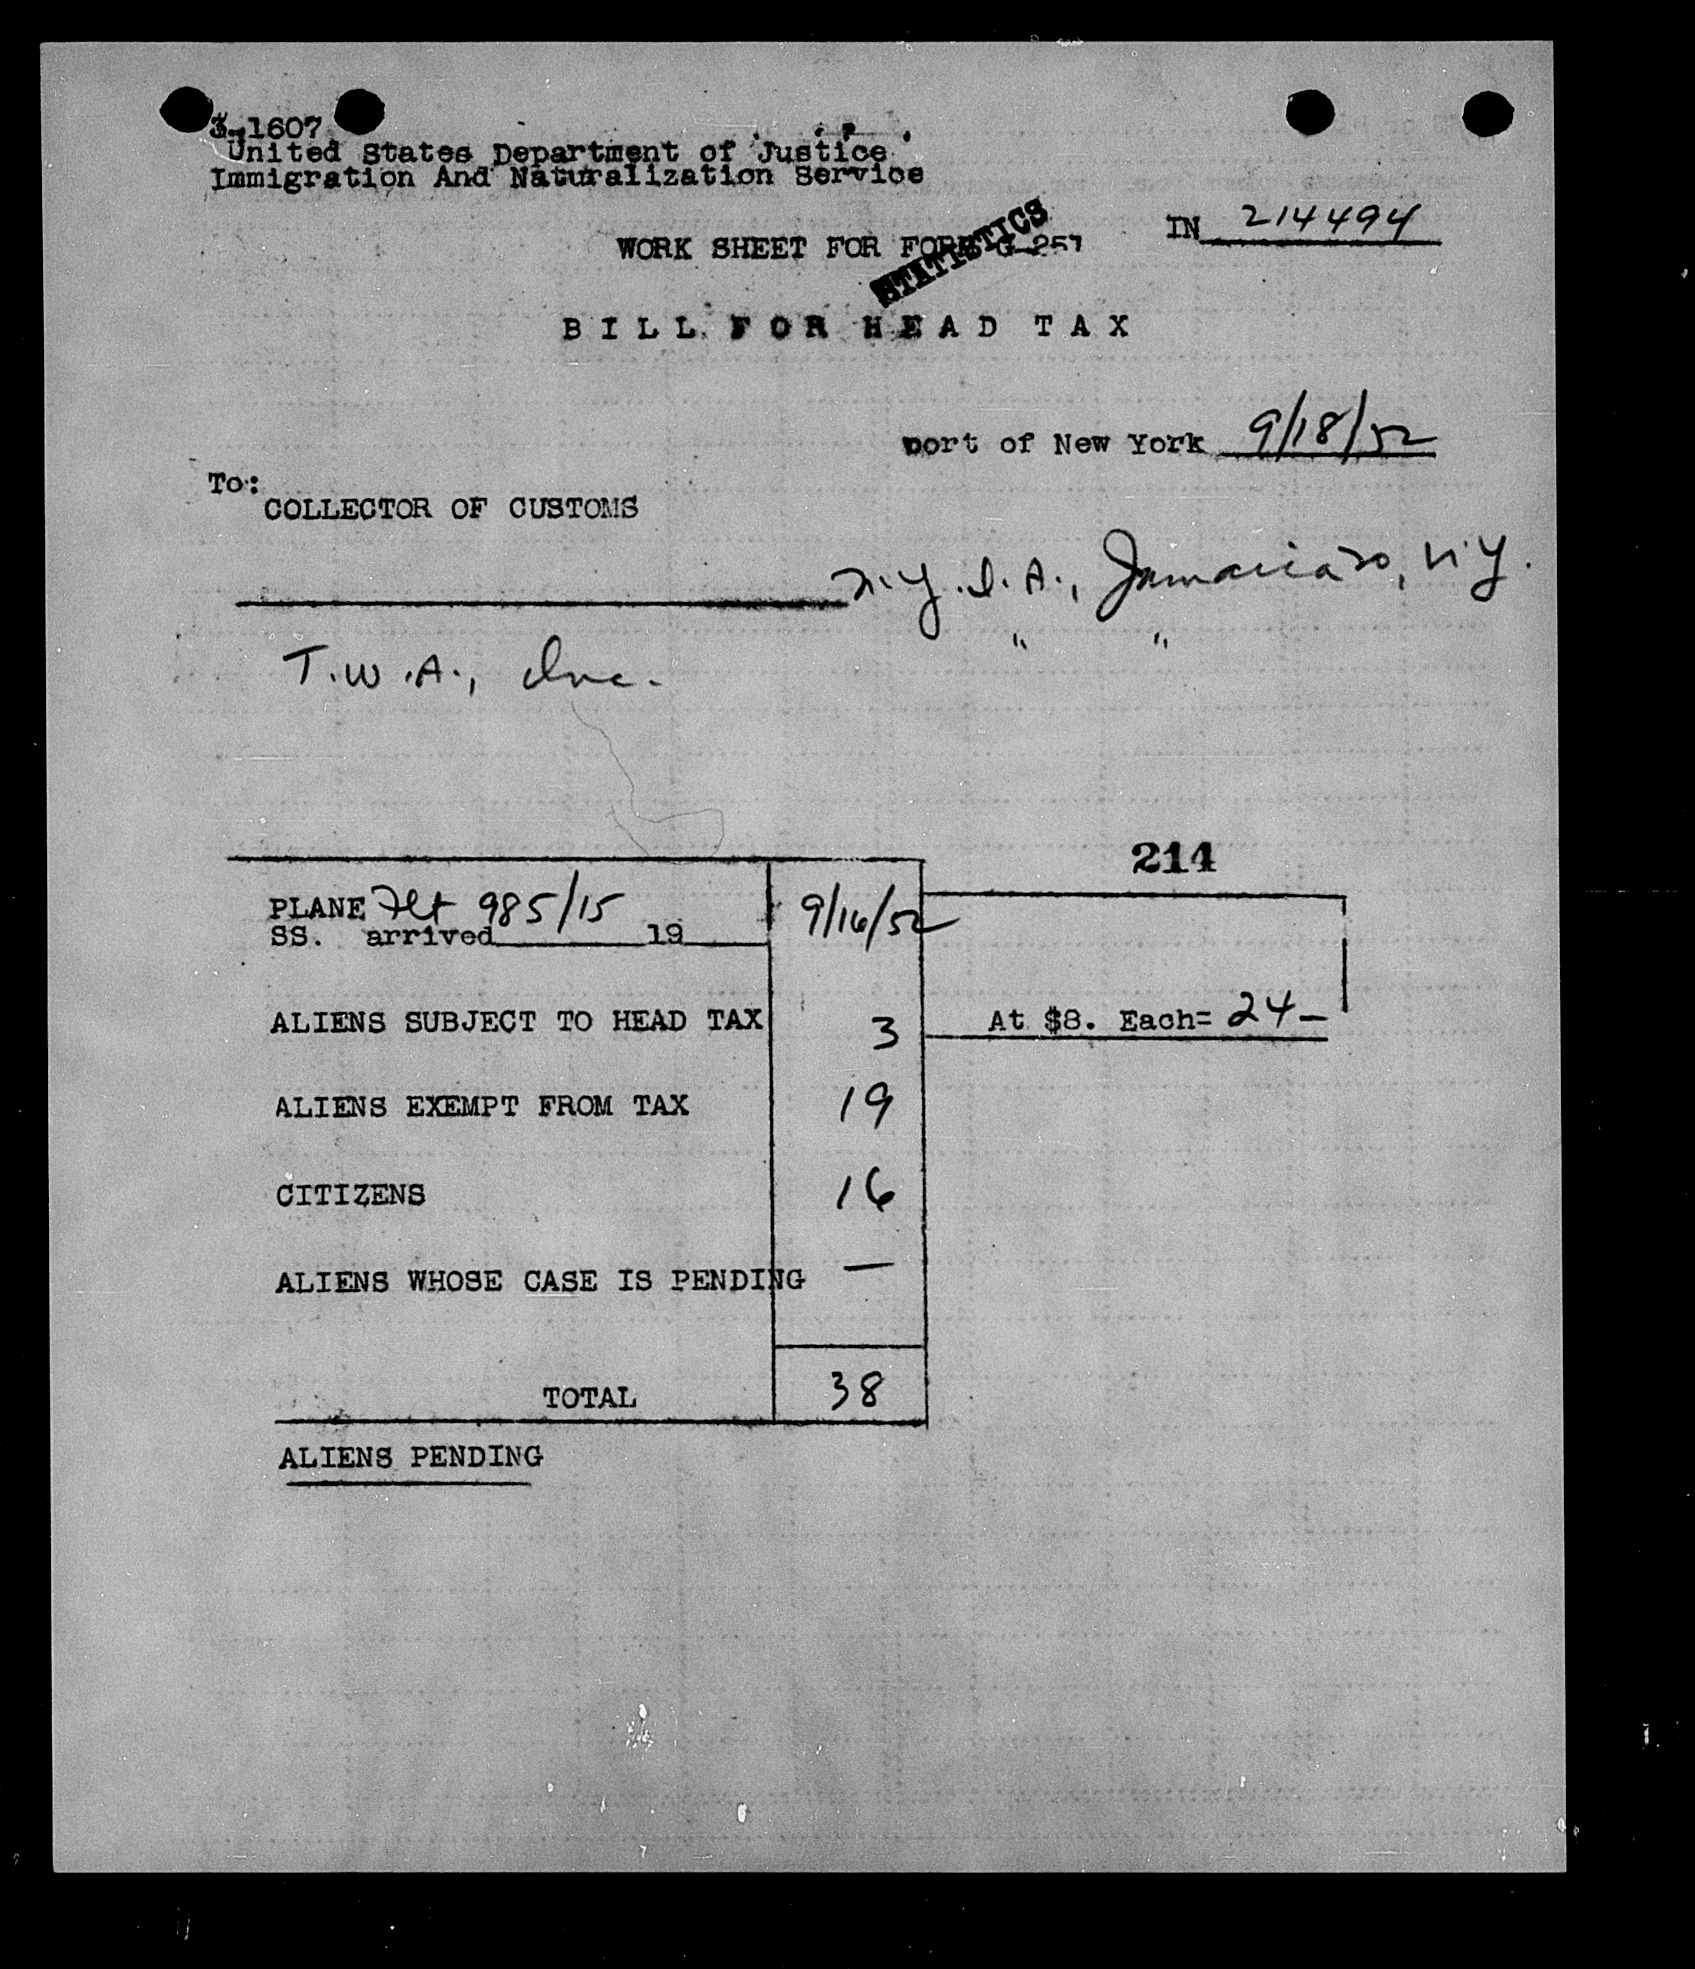 3-1607
United States Department of Justice
Immigration And Naturalization Service
STATISTICS
IN 214494
WORK SHEET FOR FORM G-257
BILL FOR HEAD TAX
port of New York 9/18/52
To:
COLLECTOR OF CUSTOMS
N.Y.I.A., Jamaica 30, N.Y.
" "
T.W.A., Inc.
214
PLANE Flt 985/15 9/16/52
SS. arrived 19
ALIENS SUBJECT TO HEAD TAX 3 At $8. Each= 24-
ALIENS EXEMPT FROM TAX 19
CITIZENS 16
ALIENS WHOSE CASE IS PENDING —
TOTAL 38
ALIENS PENDING